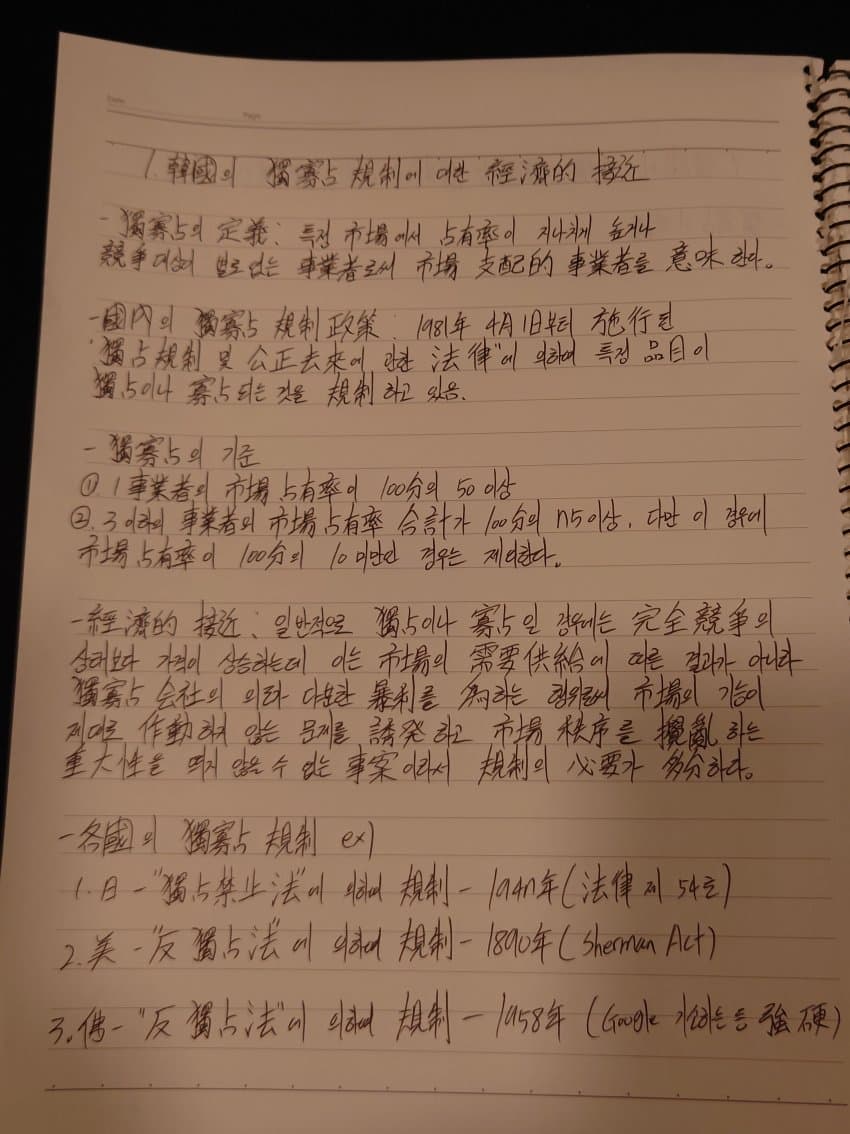 Date. Page
1. 韓國의 獨寡占 規制에 대한 經濟的 接近
- 獨寡占의 定義: 특정 市場에서 占有率이 지나치게 높거나
競爭대상이 별로 없는 事業者로써 市場 支配的 事業者를 意味한다.
- 國內의 獨寡占 規制政策: 1981年 4月 1日부터 施行된
"獨占規制 및 公正去來에 관한 法律"에 의하여 특정 品目이
獨占이나 寡占되는 것을 規制하고 있음.
- 獨寡占의 기준
①. 1事業者의 市場占有率이 100分의 50이상
②. 3이하의 事業者의 市場占有率 合計가 100分의 75이상. 다만 이 경우에
市場占有率이 100分의 10미만인 경우는 제외한다.
- 經濟的 接近: 일반적으로 獨占이나 寡占일 경우에는 完全競爭의
상태보다 가격이 상승하는데 이는 市場의 需要供給에 따른 결과가 아니라
獨寡占 会社의 의도 다분한 暴利를 爲하는 행위로써 市場의 기능이
제대로 作動하지 않는 문제를 誘発하고 市場 秩序를 攪亂하는
重大性을 띄지 않을 수 없는 事案이라서 規制의 必要가 多分하다.
- 各國의 獨寡占 規制 ex)
1. 日 - "獨占禁止法"에 의하여 規制 - 1947年 (法律 제 54호)
2. 美 - "反獨占法"에 의하여 規制 - 1890年 (Sherman Act)
3. 佛 - "反獨占法"에 의하여 規制 - 1958年 (Google 기소하는 등 強硬)